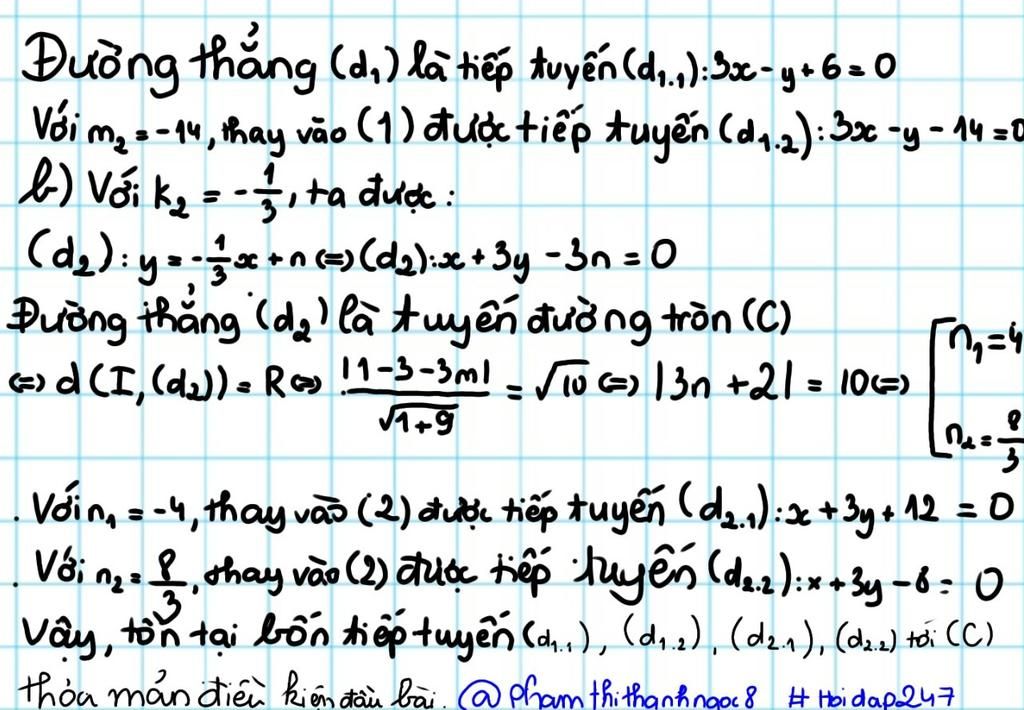 Đường thẳng (d₁) là tiếp tuyến (d₁.₁): 3x - y + 6 = 0
Với m₂ = -14, thay vào (1) được tiếp tuyến (d₁.₂): 3x - y - 14 = 0
b) Với k₂ = -1/3, ta được:
(d₂): y = -1/3x + n ⇔ (d₂): x + 3y - 3n = 0
Đường thẳng (d₂) là tuyến đường tròn (C)
⇔ d(I, (d₂)) = R ⇔ |1-3-3m|/√(1+9) = √10 ⇔ |3n + 2| = 10 ⇔ [n₁ = 4
n₂ = 8/3
. Với n₁ = -4, thay vào (2) được tiếp tuyến (d₂.₁): x + 3y + 12 = 0
. Với n₂ = 8/3, thay vào (2) được tiếp tuyến (d₂.₂): x + 3y - 8 = 0
Vậy, tồn tại bốn tiếp tuyến (d₁.₁), (d₁.₂), (d₂.₁), (d₂.₂) tới (C)
thỏa mản điều kiện đầu bài. @phamthithanhngoc8 #Hoidap247